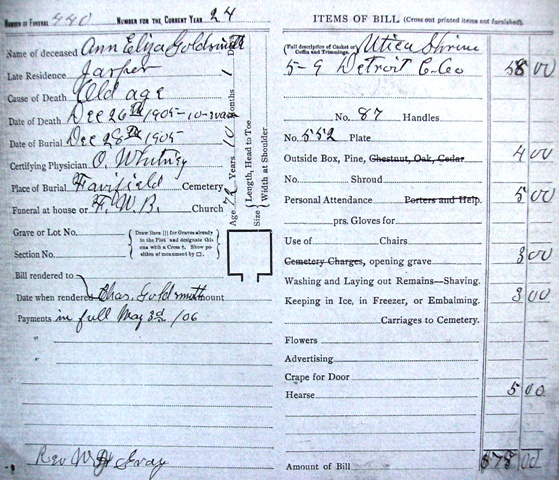 NUMBER OF FUNERAL 440 NUMBER FOR THE CURRENT YEAR 24
Name of deceased Ann Eliza Goldsmith
Late Residence Jasper
Cause of Death Old age
Date of Death Dec 26th 1905-10-
Date of Burial Dec 28th 1905
Certifying Physician O. Whitney
Place of Burial Fairfield Cemetery
Funeral at house or F. W. B. Church
Age 72 Years 10 Months 1 Days
Size { Length, Head to Toe
Width at Shoulder
Grave or Lot No.
Section No.
{ Draw lines ||| for Graves already in the Plot and designate this one with a Cross X. Show position of monument by □. }
Bill rendered to
Date when rendered Chas. Goldsmith Amount
Payments in full May 3d /06
"
"
Rev W H Gray
ITEMS OF BILL (Cross out printed items not furnished).
(Full description of Casket or Coffin and Trimmings. Utica Shrine
5-9 Detroit C. Co 58 00
No. 87 Handles
No. 552 Plate
Outside Box, Pine, Chestnut, Oak, Cedar 4 00
No. Shroud
Personal Attendance Porters and Help. 5 00
prs. Gloves for
Use of Chairs
Cemetery Charges, opening grave 3 00
Washing and Laying out Remains—Shaving.
Keeping in Ice, in Freezer, or Embalming. 3 00
Carriages to Cemetery.
Flowers
Advertising
Crape for Door
Hearse 5 00
Amount of Bill $78 00